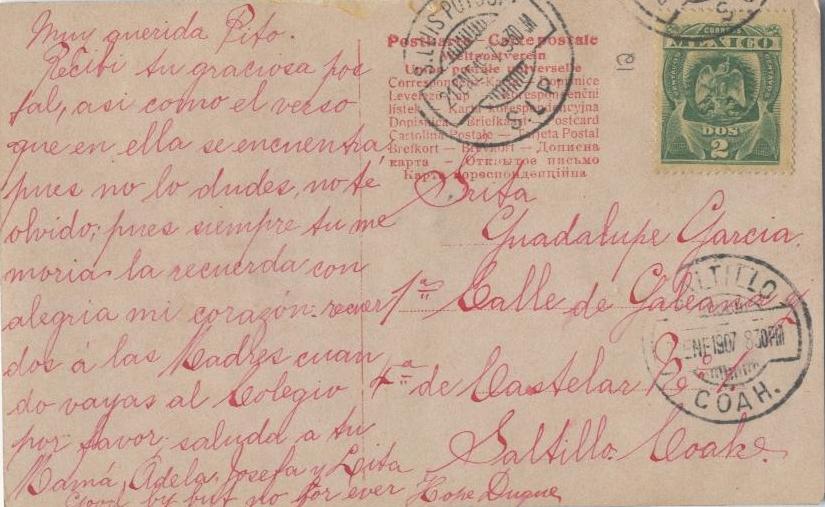 Muy querida Pito.
Recibi tu graciosa pos
tal, asi como el verso
que en ella se encuentra
pues no lo dudes, no te
olvido; pues siempre tu me
moria la recuerda con
alegria mi corazón: recuer
dos á las Madres cuan
do vayas al Colegio
por favor saluda a tu
Mamá, Adela, Josefa y Lita
Good by but no for ever Hope Duque
Postkarte — Carte postale
Weltpostverein
Union postale universelle
Levelező
listek — Karta Korespondencyjna
Dopisnica — Briefkaart — Postcard
Cartolina Postale — Tarjeta Postal
Brefkort — Дописна
карта — Открытое письмо
Карта кореспонденційна
Srita
Guadalupe Garcia.
1ª Calle de Galeana y
4ª de Castelar
Saltillo Coah.
CORREOS
MEXICO
DOS
2
S. LUIS POTOSI
S.L.P.
SALTILLO
ENE 1907 830PM
COAH.
19